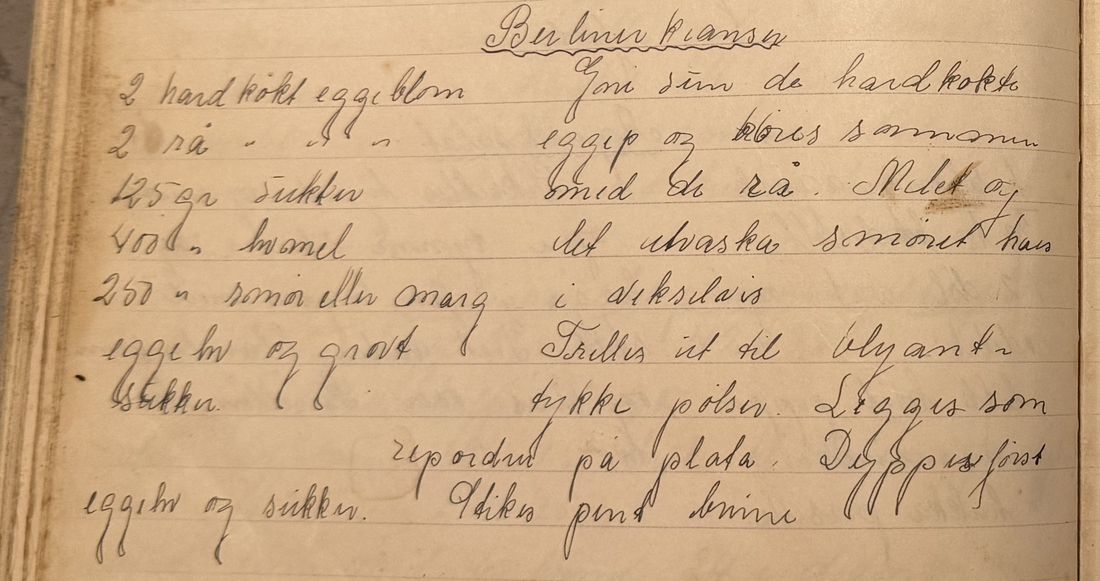 Berliner kranser
2 hardkokt eggeblom
2 rå " " "
125 gr sukker
400 " hvmel
250 " smør eller marg
eggehv og grovt
sukker.
sun de hardkokte
eggep og røres sammen
med de rå. Melet og
det utvaska smøret haes
i vekselvis
Trilles ut til blyant-
tykke pølser. Legges som
på plata. Dyppes først
eggehv og sukker. Stikes pent brune